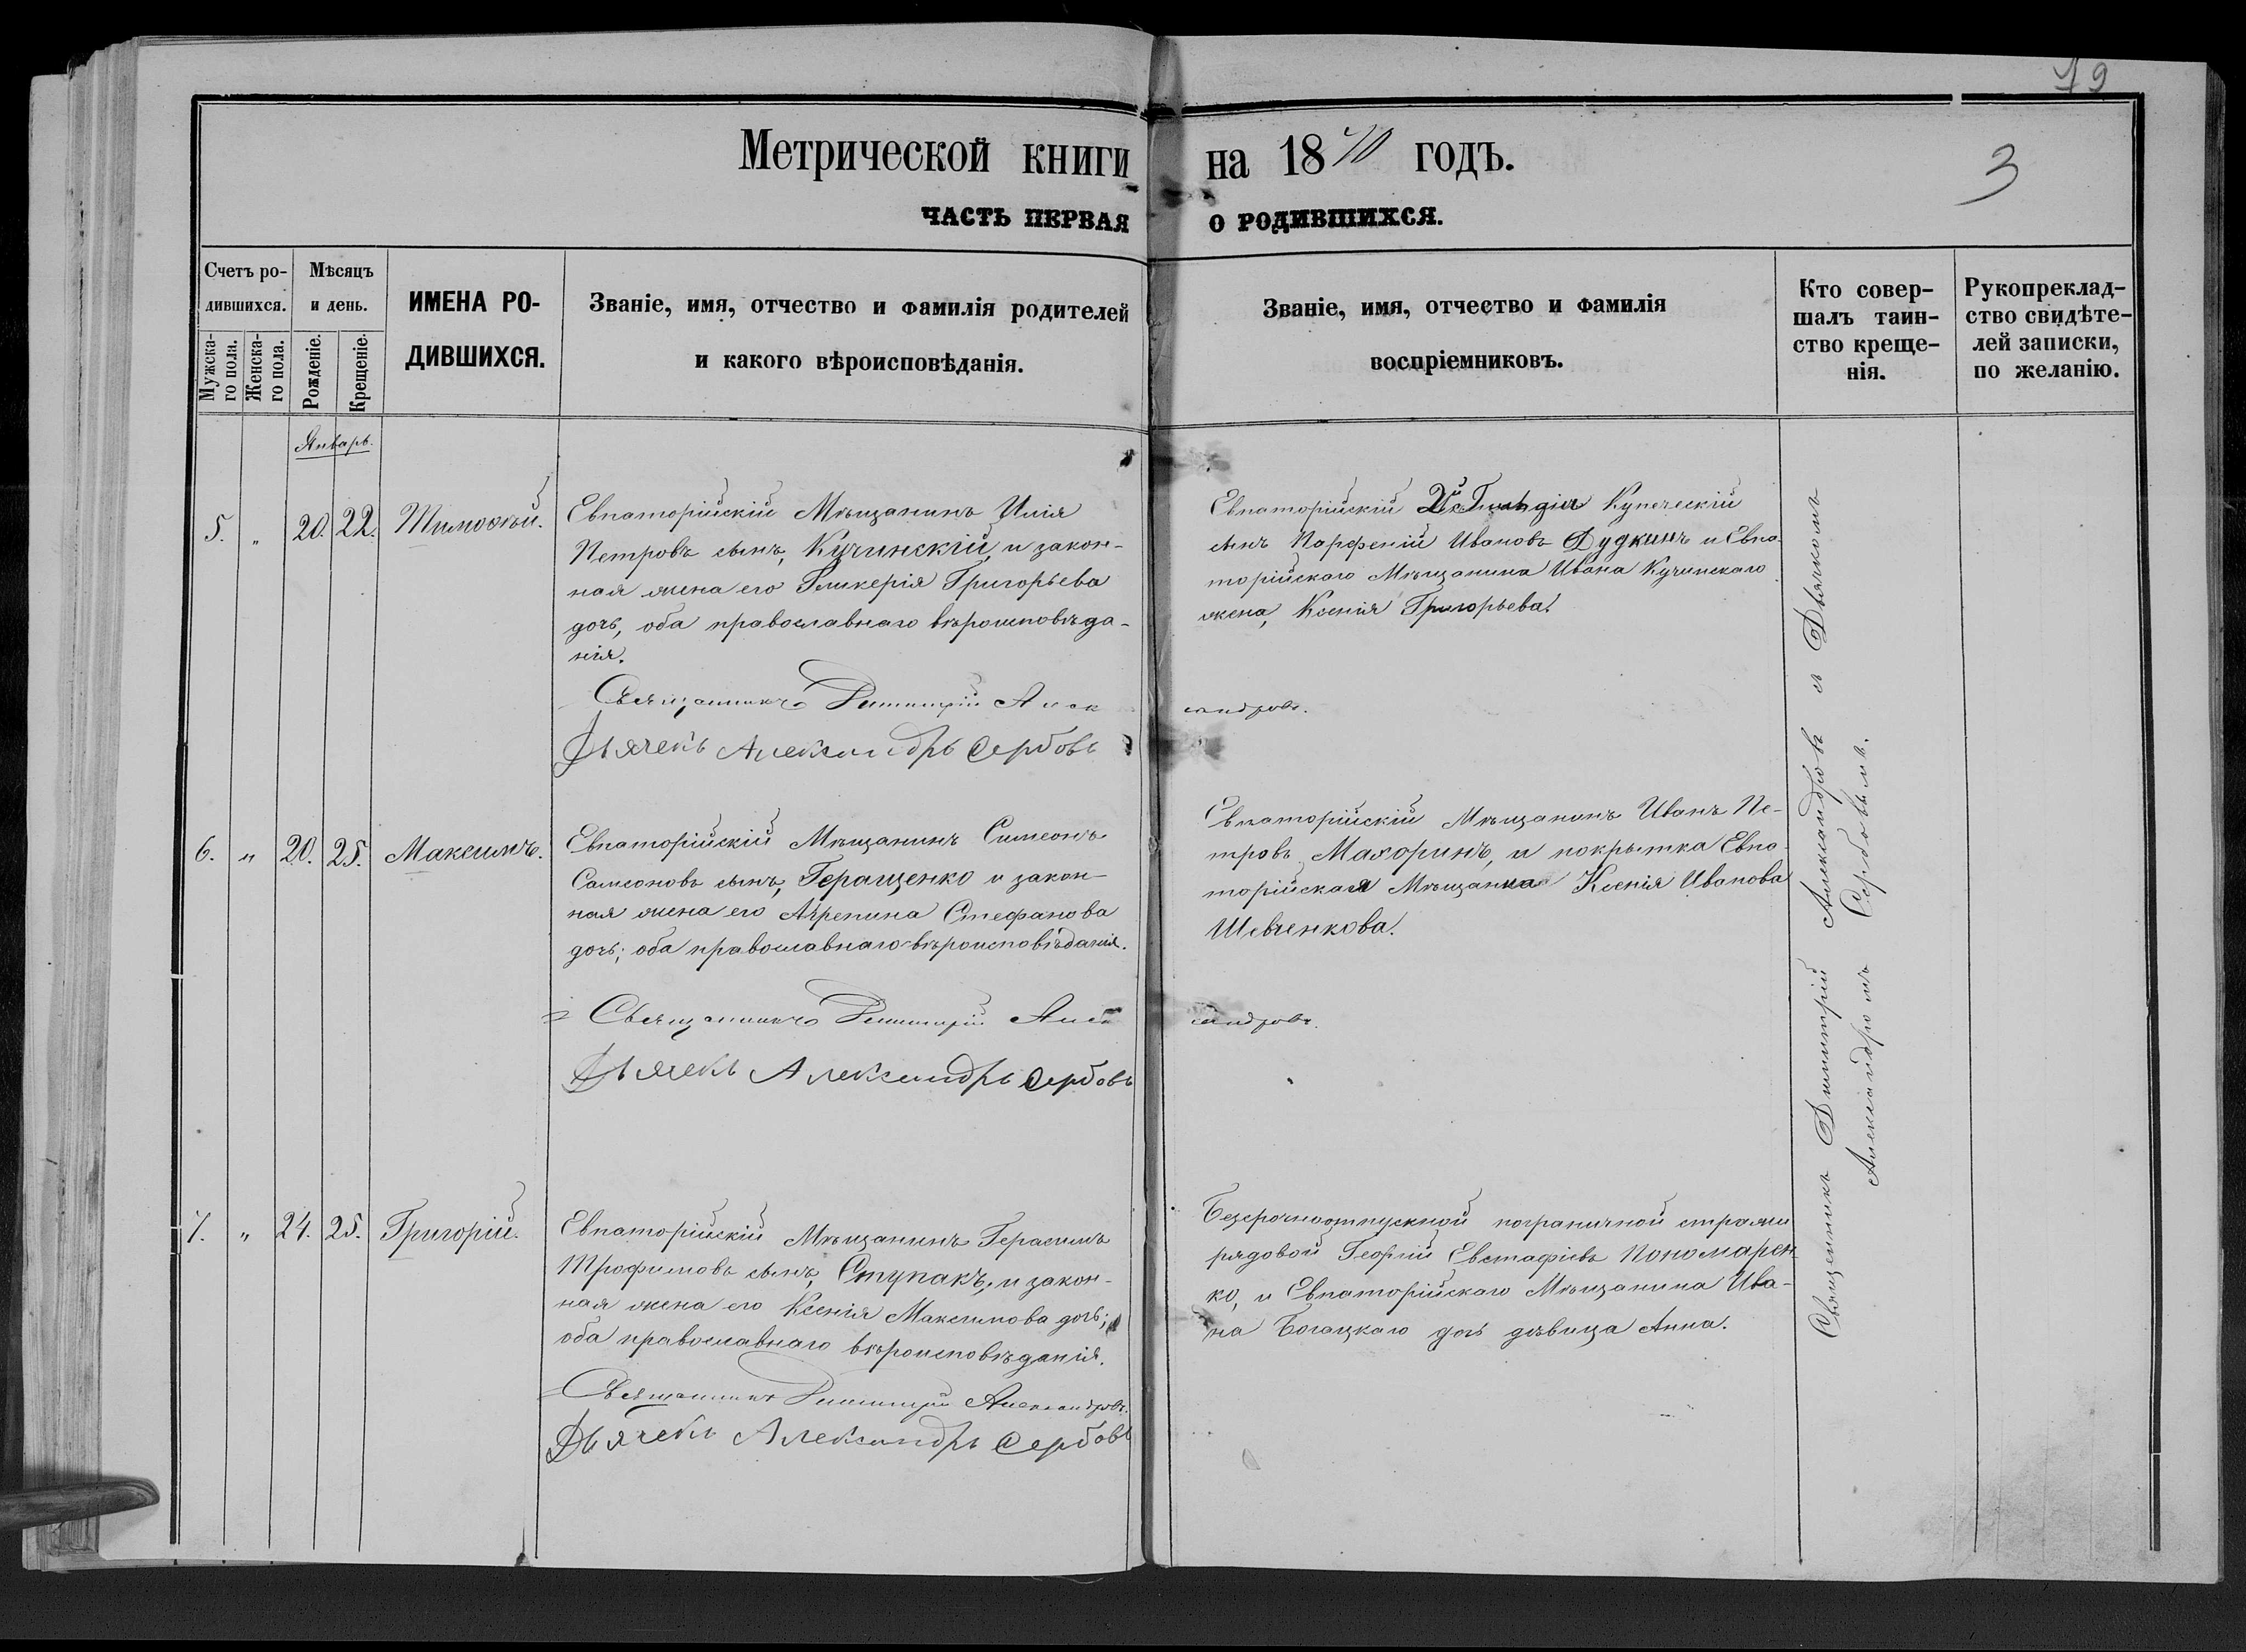 79
Метрической книги на 1870 годъ.
3
ЧАСТЬ ПЕРВАЯ О РОДИВШИХСЯ.
Счетъ ро-
дившихся.
Мужска-
го пола.
Женска-
го пола.
Мѣсяцъ
и день.
Рожденіе.
Крещеніе.
ИМЕНА РО-
ДИВШИХСЯ.
Званіе, имя, отчество и фамилія родителей
и какого вѣроисповѣданія.
Званіе, имя, отчество и фамилія
воспріемниковъ.
Кто совер-
шалъ таин-
ство креще-
нія.
Рукопреклад-
ство свидѣте-
лей записки,
по желанію.
Январь.
5. " 20. 22. Тимоѳей.
Евпаторійскій Мѣщанинъ Илія
Петровъ сынъ, Кучинскій, и закон-
ная жена его Гликерія Григорьева
дочь, оба православнаго вѣроисповѣда-
нія.
Священникъ Димитрій Александровъ.
Дьячекъ Александръ Сербовъ
Евпаторійскій Гильдіи Купеческій
сынъ Парфеній Ивановъ Дудкинъ и Евпа-
торійскаго Мѣщанина Ивана Кучинскаго
жена, Ксенія Григорьева.
6. " 20. 25. Максимъ.
Евпаторійскій Мѣщанинъ Симеонъ
Самсоновъ сынъ, Геращенко и закон-
ная жена его Агрепина Стефанова
дочь; оба православнаго вѣроисповѣданія.
Священникъ Димитрій Александровъ.
Дьячекъ Александръ Сербовъ
Евпаторійскій Мѣщанинъ Иванъ Пе-
тровъ Махоринъ, и покрытка Евпа-
торійская Мѣщанка Ксенія Иванова
Шевченкова.
7. " 24. 25. Григорій.
Евпаторійскій Мѣщанинъ Герасимъ
Трофимовъ сынъ, Ступакъ, и закон-
ная жена его Ксенія Максимова дочь;
оба православнаго вѣроисповѣданія.
Священникъ Димитрій Александровъ.
Дьячекъ Александръ Сербовъ
Безсрочноотпускной пограничной стражи
рядовой Георгій Евстафіевъ Пономарен-
ко, и Евпаторійскаго Мѣщанина Ива-
на Богацкаго дочь дѣвица Анна.
Священникъ Димитрій Александровъ съ Дьячкомъ
Александромъ Сербовымъ.